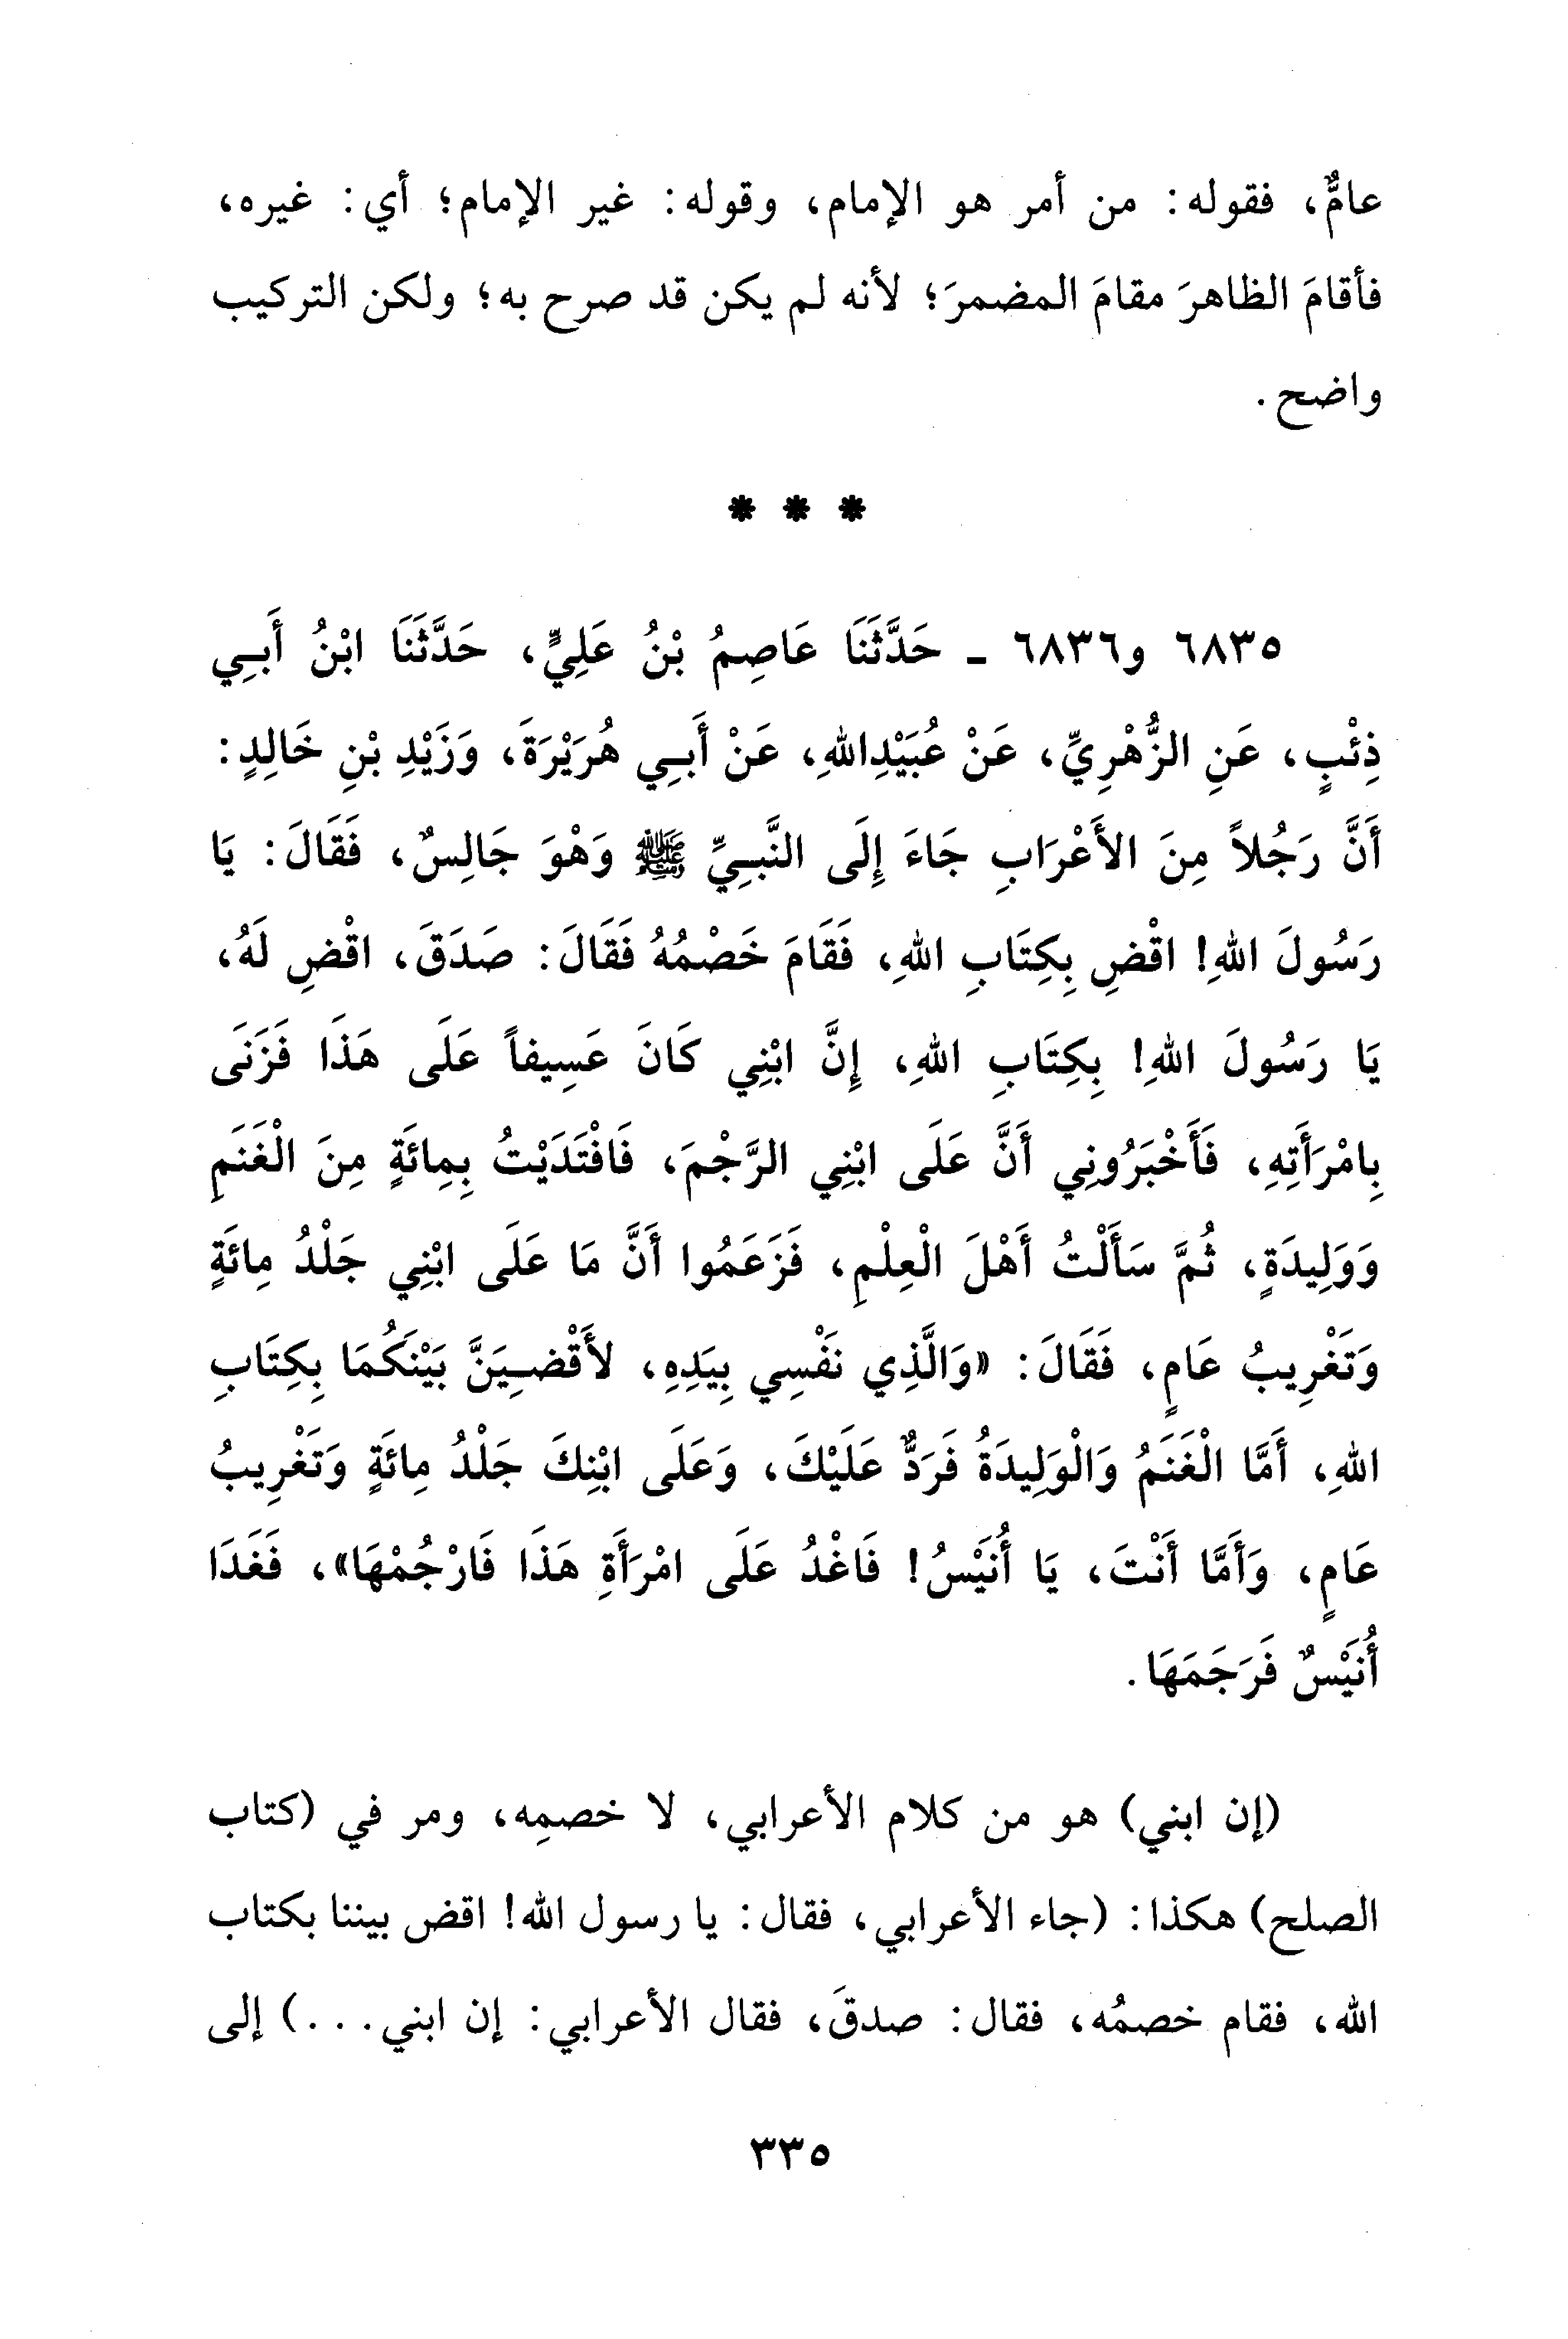 عامٌّ، فقوله: من أمر هو الإمام، وقوله: غير الإمام؛ أي: غيره،
فأقامَ الظاهرَ مقامَ المضمرَ؛ لأنه لم يكن قد صرح به؛ ولكن التركيب
واضح.
* * *
٦٨٣٥ و٦٨٣٦ - حَدَّثَنَا عَاصِمُ بْنُ عَلِيٍّ، حَدَّثَنَا ابْنُ أَبِي
ذِئْبٍ، عَنِ الزُّهْرِيِّ، عَنْ عُبَيْدِاللهِ، عَنْ أَبِي هُرَيْرَةَ، وَزَيْدِ بْنِ خَالِدٍ:
أَنَّ رَجُلاً مِنَ الأَعْرَابِ جَاءَ إِلَى النَّبِيِّ ﷺ وَهْوَ جَالِسٌ، فَقَالَ: يَا
رَسُولَ اللهِ! اقْضِ بِكِتَابِ اللهِ، فَقَامَ خَصْمُهُ فَقَالَ: صَدَقَ، اقْضِ لَهُ،
يَا رَسُولَ اللهِ! بِكِتَابِ اللهِ، إِنَّ ابْنِي كَانَ عَسِيفاً عَلَى هَذَا فَزَنَى
بِامْرَأَتِهِ، فَأَخْبَرُونِي أَنَّ عَلَى ابْنِي الرَّجْمَ، فَافْتَدَيْتُ بِمِائَةٍ مِنَ الْغَنَمِ
وَوَلِيدَةٍ، ثُمَّ سَأَلْتُ أَهْلَ الْعِلْمِ، فَزَعَمُوا أَنَّ مَا عَلَى ابْنِي جَلْدُ مِائَةٍ
وَتَغْرِيبُ عَامٍ، فَقَالَ: «وَالَّذِي نَفْسِي بِيَدِهِ، لأَقْضِيَنَّ بَيْنَكُمَا بِكِتَابِ
اللهِ، أَمَّا الْغَنَمُ وَالْوَلِيدَةُ فَرَدٌّ عَلَيْكَ، وَعَلَى ابْنِكَ جَلْدُ مِائَةٍ وَتَغْرِيبُ
عَامٍ، وَأَمَّا أَنْتَ، يَا أُنَيْسُ! فَاغْدُ عَلَى امْرَأَةِ هَذَا فَارْجُمْهَا»، فَغَدَا
أُنَيْسٌ فَرَجَمَهَا.
(إن ابني) هو من كلام الأعرابي، لا خصمِه، ومر في (كتاب
الصلح) هكذا: (جاء الأعرابي، فقال: يا رسول الله! اقض بيننا بكتاب
الله، فقام خصمُه، فقال: صدقَ، فقال الأعرابي: إن ابني...) إلى
٣٣٥